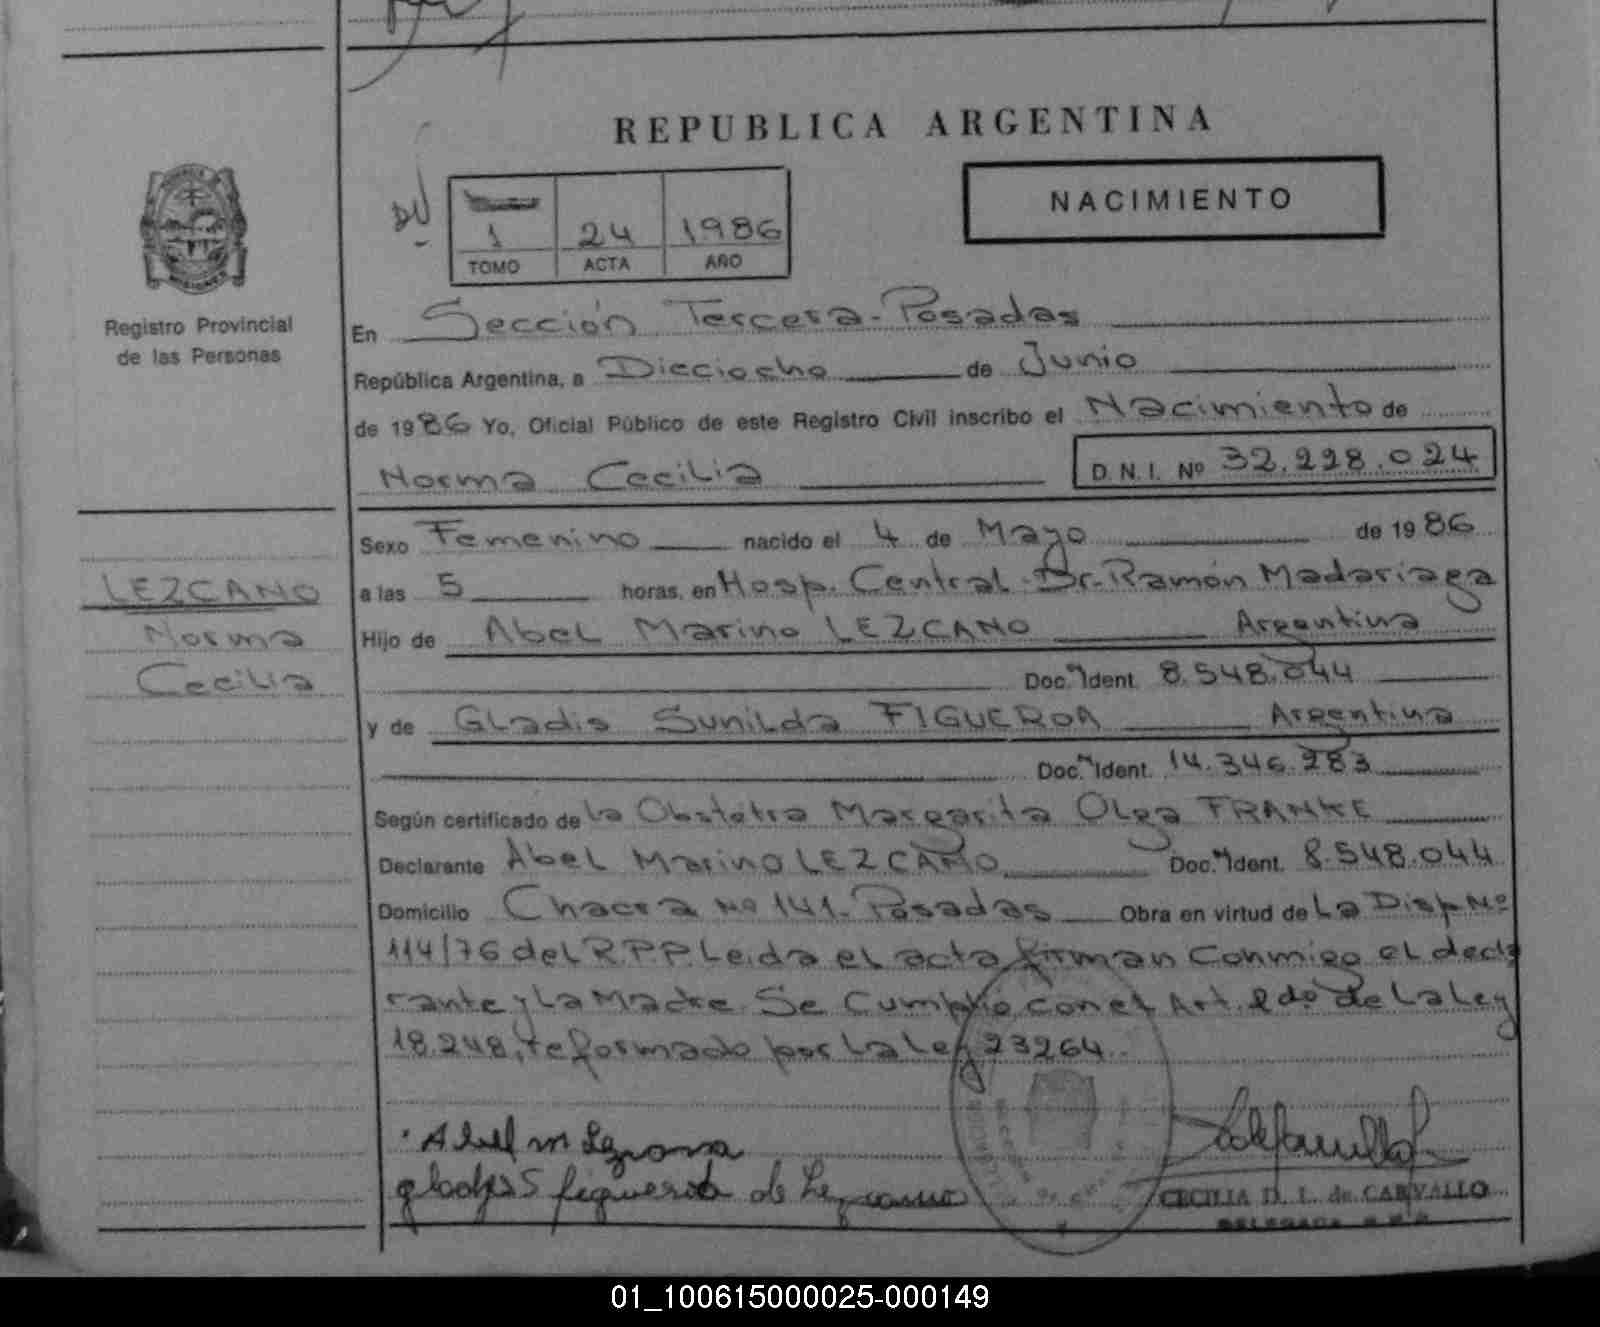 REPUBLICA ARGENTINA
NACIMIENTO
DU
1 24 1986
TOMO ACTA AÑO
MISIONES
Registro Provincial
de las Personas
En Sección Tercera - Posadas
República Argentina, a Dieciocho de Junio
de 1986 Yo, Oficial Público de este Registro Civil inscribo el Nacimiento de
Norma Cecilia D.N.I. Nº 32.228.024
Sexo Femenino nacido el 4 de Mayo de 1986
a las 5 horas, en Hosp. Central Dr. Ramón Madariaga
LEZCANO
Norma
Cecilia
Hijo de Abel Marino LEZCANO Argentina
Doc. Ident. 8.548.044
y de Gladis Sunilda FIGUEROA Argentina
Doc. Ident. 14.346.283
Según certificado de la Obstétra Margarita Olga FRANKE
Declarante Abel Marino LEZCANO Doc. Ident. 8.548.044
Domicilio Chacra Nº 141 - Posadas Obra en virtud de La Disp. Nº
114/76 del R.P.P. Leida el acta firman conmigo el decla
rante y La Madre. Se Cumplio con el Art. 2do. de La Ley
18.248, reformado por La Ley 23264.
Abel M Lezcano
gladys S figueroa de Lezcano
CECILIA D. L. de CARVALLO
DELEGADA
01_100615000025-000149